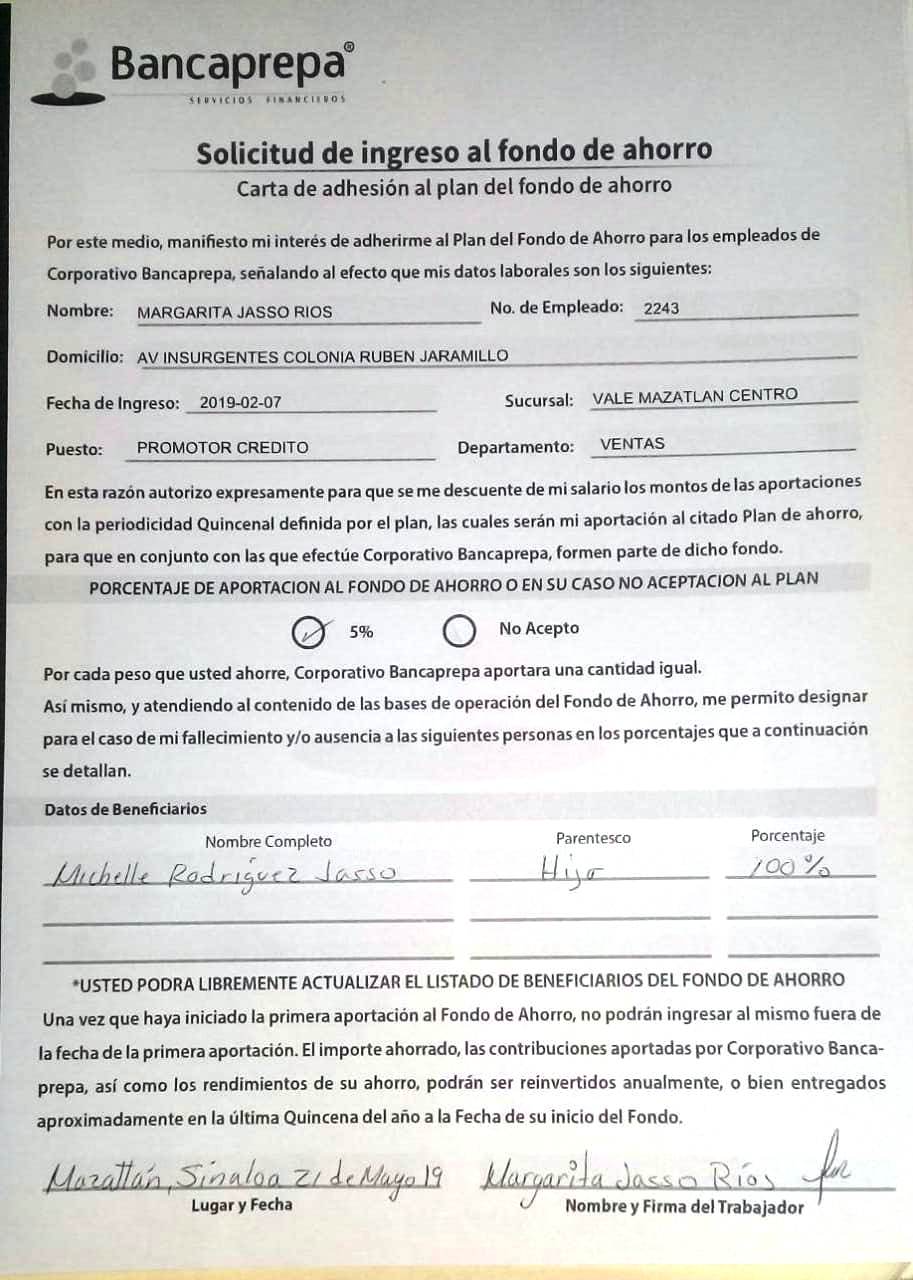 Bancaprepa®
SERVICIOS FINANCIEROS
Solicitud de ingreso al fondo de ahorro
Carta de adhesión al plan del fondo de ahorro
Por este medio, manifiesto mi interés de adherirme al Plan del Fondo de Ahorro para los empleados de
Corporativo Bancaprepa, señalando al efecto que mis datos laborales son los siguientes:
Nombre: MARGARITA JASSO RIOS No. de Empleado: 2243
Domicilio: AV INSURGENTES COLONIA RUBEN JARAMILLO
Fecha de Ingreso: 2019-02-07 Sucursal: VALE MAZATLAN CENTRO
Puesto: PROMOTOR CREDITO Departamento: VENTAS
En esta razón autorizo expresamente para que se me descuente de mi salario los montos de las aportaciones
con la periodicidad Quincenal definida por el plan, las cuales serán mi aportación al citado Plan de ahorro,
para que en conjunto con las que efectúe Corporativo Bancaprepa, formen parte de dicho fondo.
PORCENTAJE DE APORTACION AL FONDO DE AHORRO O EN SU CASO NO ACEPTACION AL PLAN
5% No Acepto
Por cada peso que usted ahorre, Corporativo Bancaprepa aportara una cantidad igual.
Así mismo, y atendiendo al contenido de las bases de operación del Fondo de Ahorro, me permito designar
para el caso de mi fallecimiento y/o ausencia a las siguientes personas en los porcentajes que a continuación
se detallan.
Datos de Beneficiarios
Nombre Completo Parentesco Porcentaje
Michelle Rodríguez Jasso Hijo 100%
*USTED PODRA LIBREMENTE ACTUALIZAR EL LISTADO DE BENEFICIARIOS DEL FONDO DE AHORRO
Una vez que haya iniciado la primera aportación al Fondo de Ahorro, no podrán ingresar al mismo fuera de
la fecha de la primera aportación. El importe ahorrado, las contribuciones aportadas por Corporativo Banca-
prepa, así como los rendimientos de su ahorro, podrán ser reinvertidos anualmente, o bien entregados
aproximadamente en la última Quincena del año a la Fecha de su inicio del Fondo.
Mazatlán, Sinaloa 21 de Mayo 19 Margarita Jasso Ríos
Lugar y Fecha Nombre y Firma del Trabajador